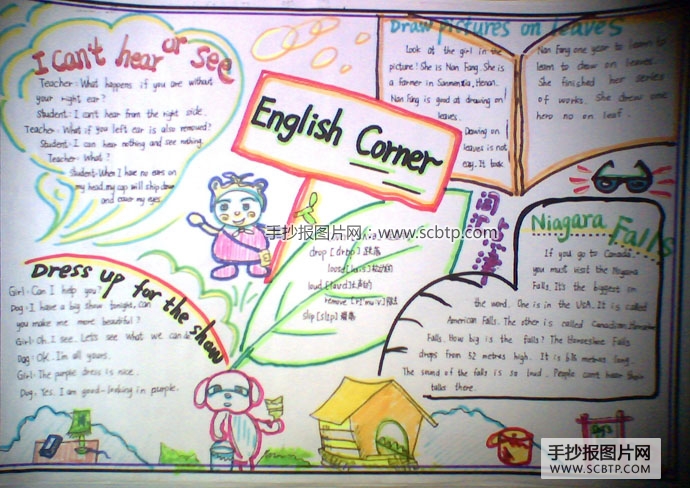 I can't hear or see
Teacher: What happens if you are without
your right ear?
Student: I can't hear from the right side.
Teacher: What if you left ear is also removed?
Student: I can hear nothing and see nothing.
Teacher: What?
Student: When I have no ears on
my head, my cap will slip down
and cover my eyes.
English Corner
Draw pictures on leaves
Look at the girl in the
picture! She is Nan Fang. She is
a farmer in Sanmenxia, Henan.
Nan Fang is good at drawing on
leaves.
Drawing on
leaves is not
easy. It took
Nan Fang one year to learn to
learn to draw on leaves.
She finished her series
of works. She drew one
hero no on leaf.
手抄报图片网:www.scbtp.com
drop
loose
loud
remove
slip
Dress up for the show
Girl: Can I help you?
Dog: I have a big show tonight, can
you make me more beautiful?
Girl: Oh. I see. Let's see What we can do.
Dog: OK. I'm all yours.
Girl: The purple dress is nice.
Dog: Yes. I am good-looking in purple.
Niagara Falls
If you go to Canada
you must visit the Niagara
Falls. It's the biggest on
the word. One is in the USA. It is called
American Falls. The other is called Canadian
Falls. How big is the falls? The Horseshoe Falls
drops from 52 metres high. It is metres long.
The sound of the falls is so loud. People can't hear their
talks there.
手抄报图片网
WWW.SCBTP.COM